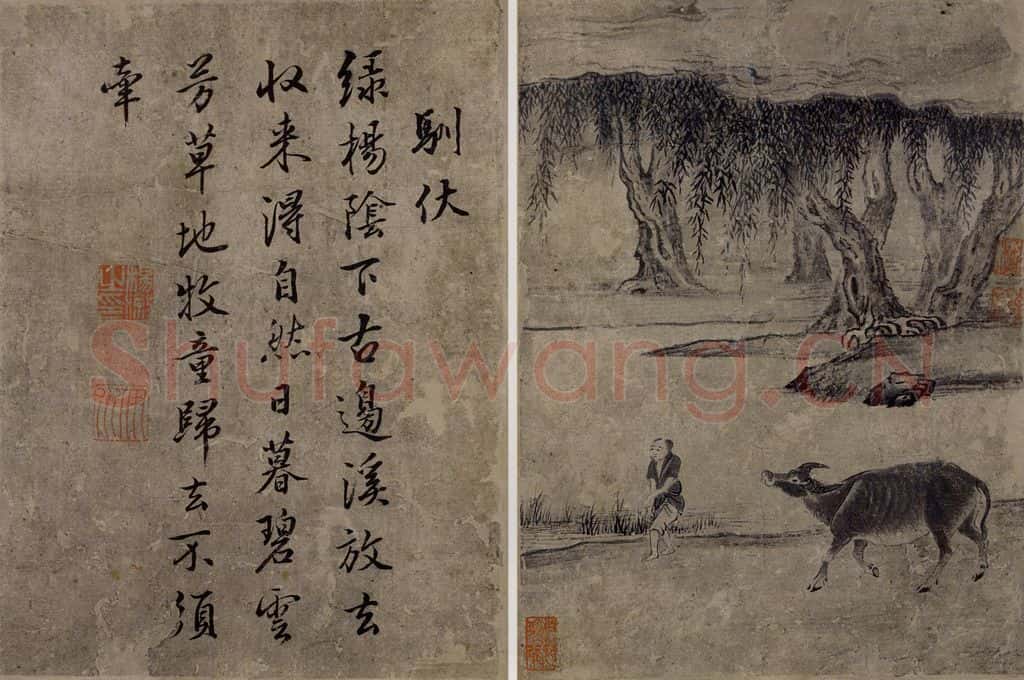 馴伏
緑楊陰下古邊溪放去
收来得自然日暮碧雲
芳草地牧童歸去不須
牽
Shufawang.CN